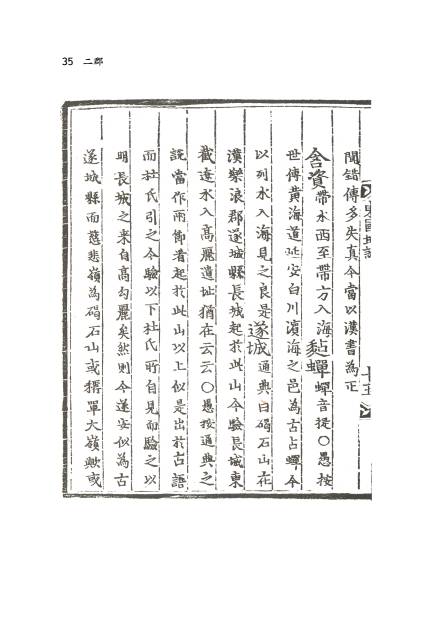 35 二郡
東國地誌
十五
聞錯傳多失真今當以漢書為正
含資帶水西至帶方入海黏蟬蟬音提○愚按
世傳黃海道延安白川濱海之邑為古占蟬今
以列水入海見之良是遂城通典曰碣石山在
漢樂浪郡遂城縣長城起於此山今驗長城東
截遼水入高麗遺址猶在云云○愚按通典之
說當作兩節看起於此山以上似是出於古語
而杜氏引之今驗以下杜氏所自見而驗之以
明長城之来自高勾麗矣然則今遂安似為古
遂城縣而慈悲嶺為碣石山或猬單大嶺歟或